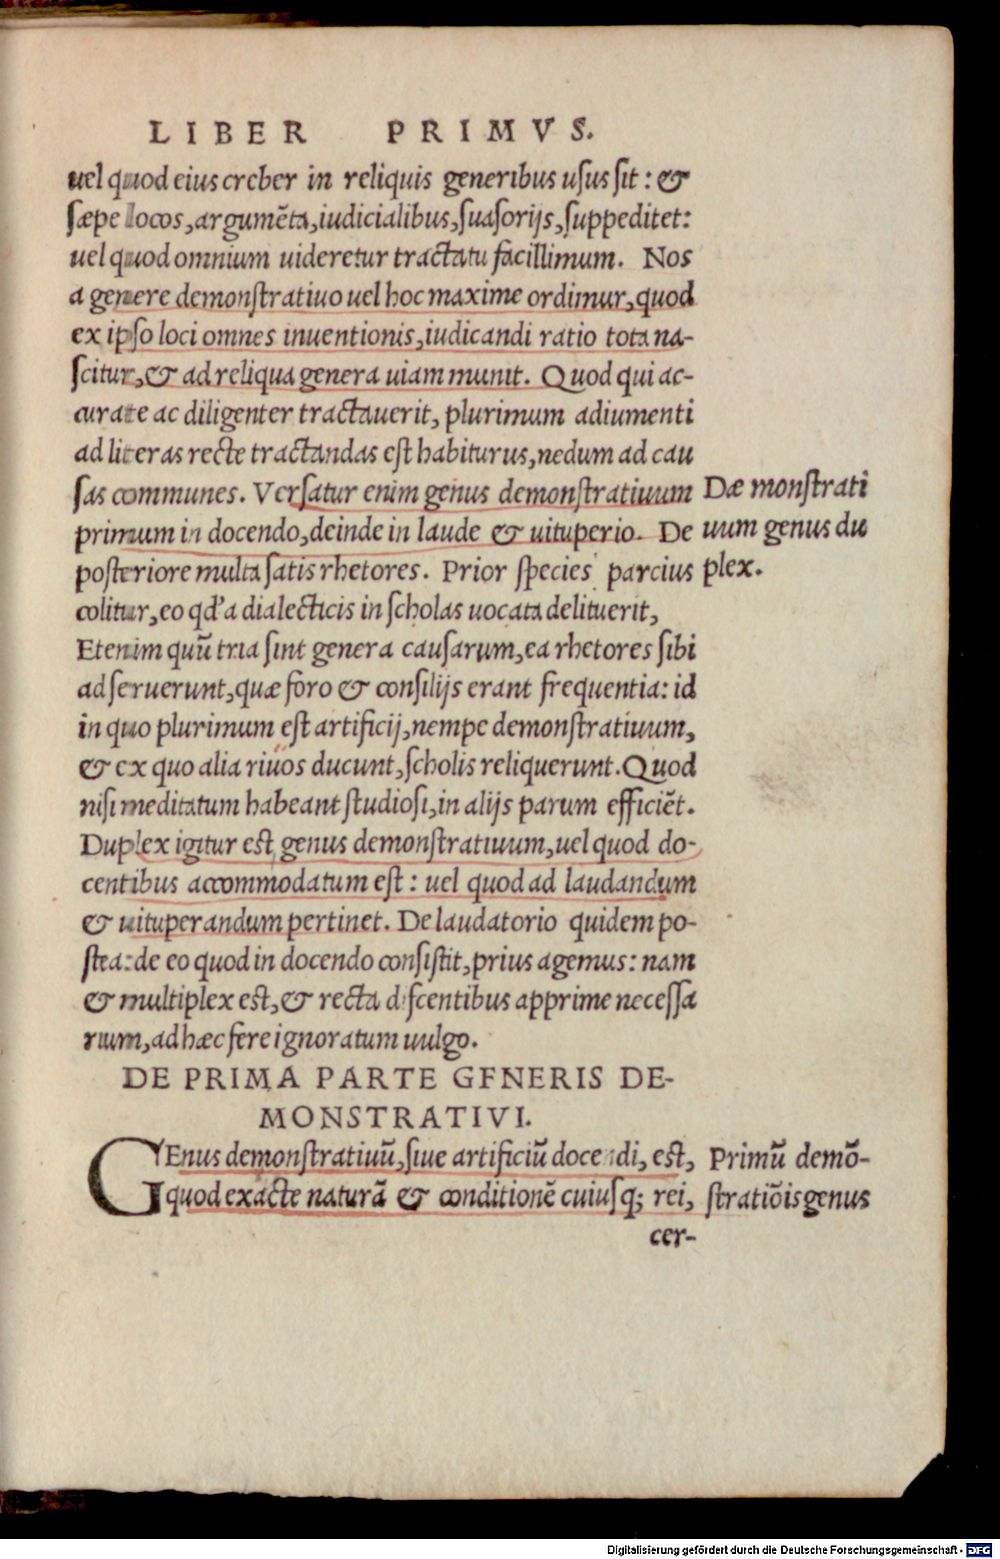 LIBER PRIMVS.
uel quod eius creber in reliquis generibus usus sit: &
sæpe locos, argumẽta, iudicialibus, suasorijs, suppeditet:
uel quod omnium uideretur tractatu facillimum. Nos
a genere demonstratiuo uel hoc maxime ordimur, quod
ex ipso loci omnes inuentionis, iudicandi ratio tota na-
scitur, & ad reliqua genera uiam munit. Quod qui ac-
curate ac diligenter tractauerit, plurimum adiumenti
ad literas recte tractandas est habiturus, nedum ad cau
sas communes. Versatur enim genus demonstratiuum
primum in docendo, deinde in laude & uituperio. De
posteriore multa satis rhetores. Prior species parcius
colitur, eo qd' a dialecticis in scholas uocata delituerit,
Etenim quũ tria sint genera causarum, ea rhetores sibi
adseruerunt, quæ foro & consilijs erant frequentia: id
in quo plurimum est artificij, nempe demonstratiuum,
& ex quo alia riuos ducunt, scholis reliquerunt. Quod
nisi meditatum habeant studiosi, in alijs parum efficiẽt.
Duplex igitur est genus demonstratiuum, uel quod do-
centibus accommodatum est: uel quod ad laudandum
& uituperandum pertinet. De laudatorio quidem po-
stea: de eo quod in docendo consistit, prius agemus: nam
& multiplex est, & recta discentibus apprime necessa
rium, ad hæc fere ignoratum uulgo.
Dæ monstrati
uum genus du
plex.
DE PRIMA PARTE GENERIS DE-
MONSTRATIVI.
GEnus demonstratiuũ, siue artificiũ docendi, est,
quod exacte naturã & conditionẽ cuiusq; rei,
cer-
Primũ demõ-
stratiõis genus
Digitalisierung gefördert durch die Deutsche Forschungsgemeinschaft - DFG